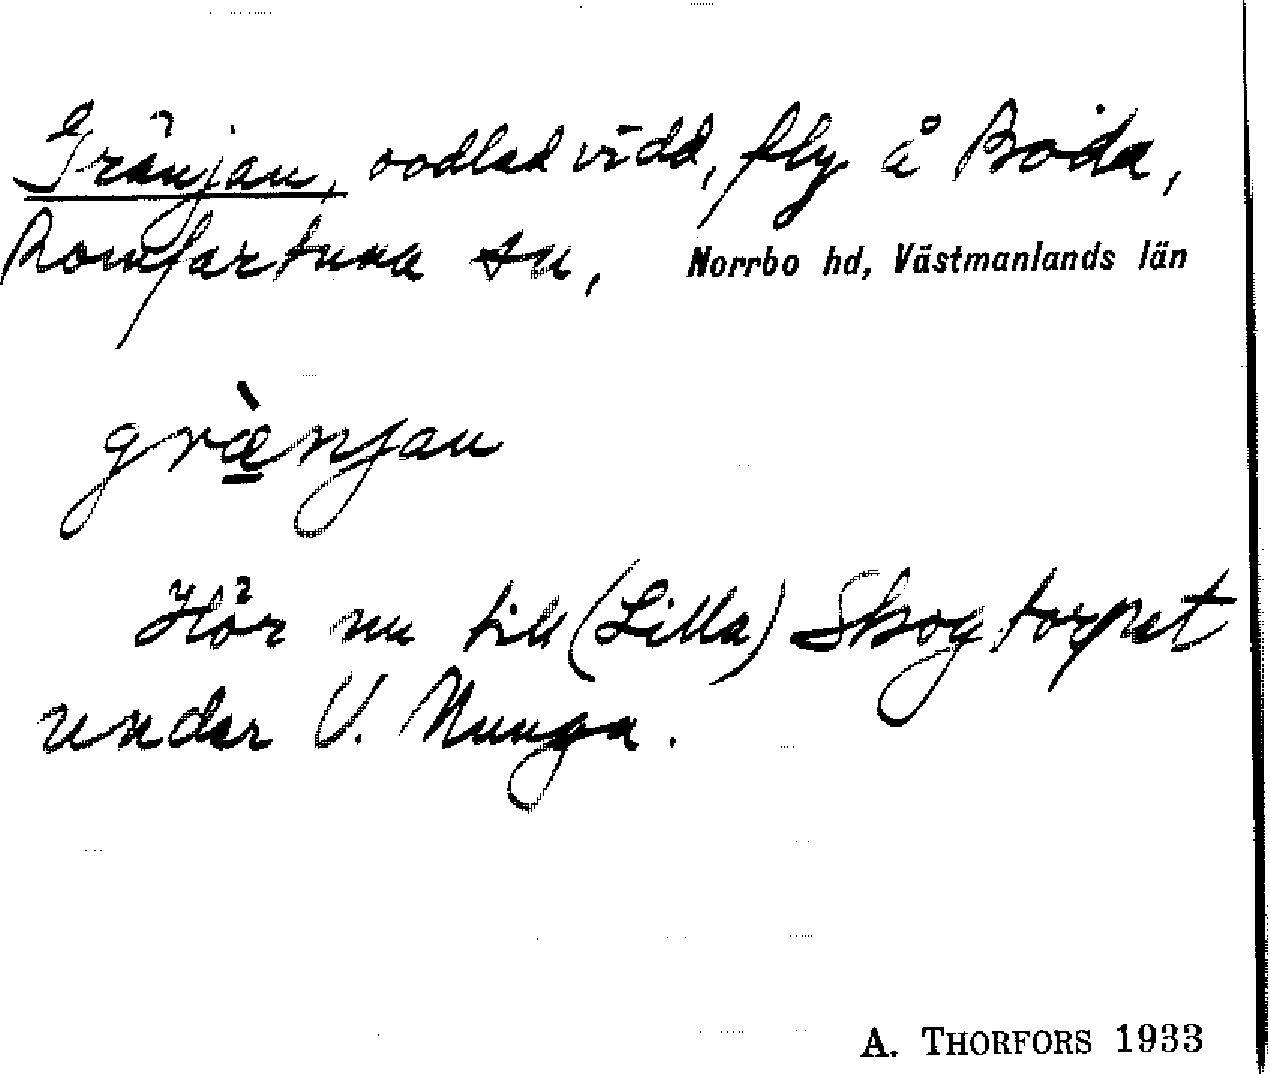 Gränjan, oodlad vidd, fly å Boda,
Romfartuna sn, Norrbo hd, Västmanlands län
græ̀njan
Hör nu till (Lilla) Skogtorpet
under V. Nunga.
A. THORFORS 1933